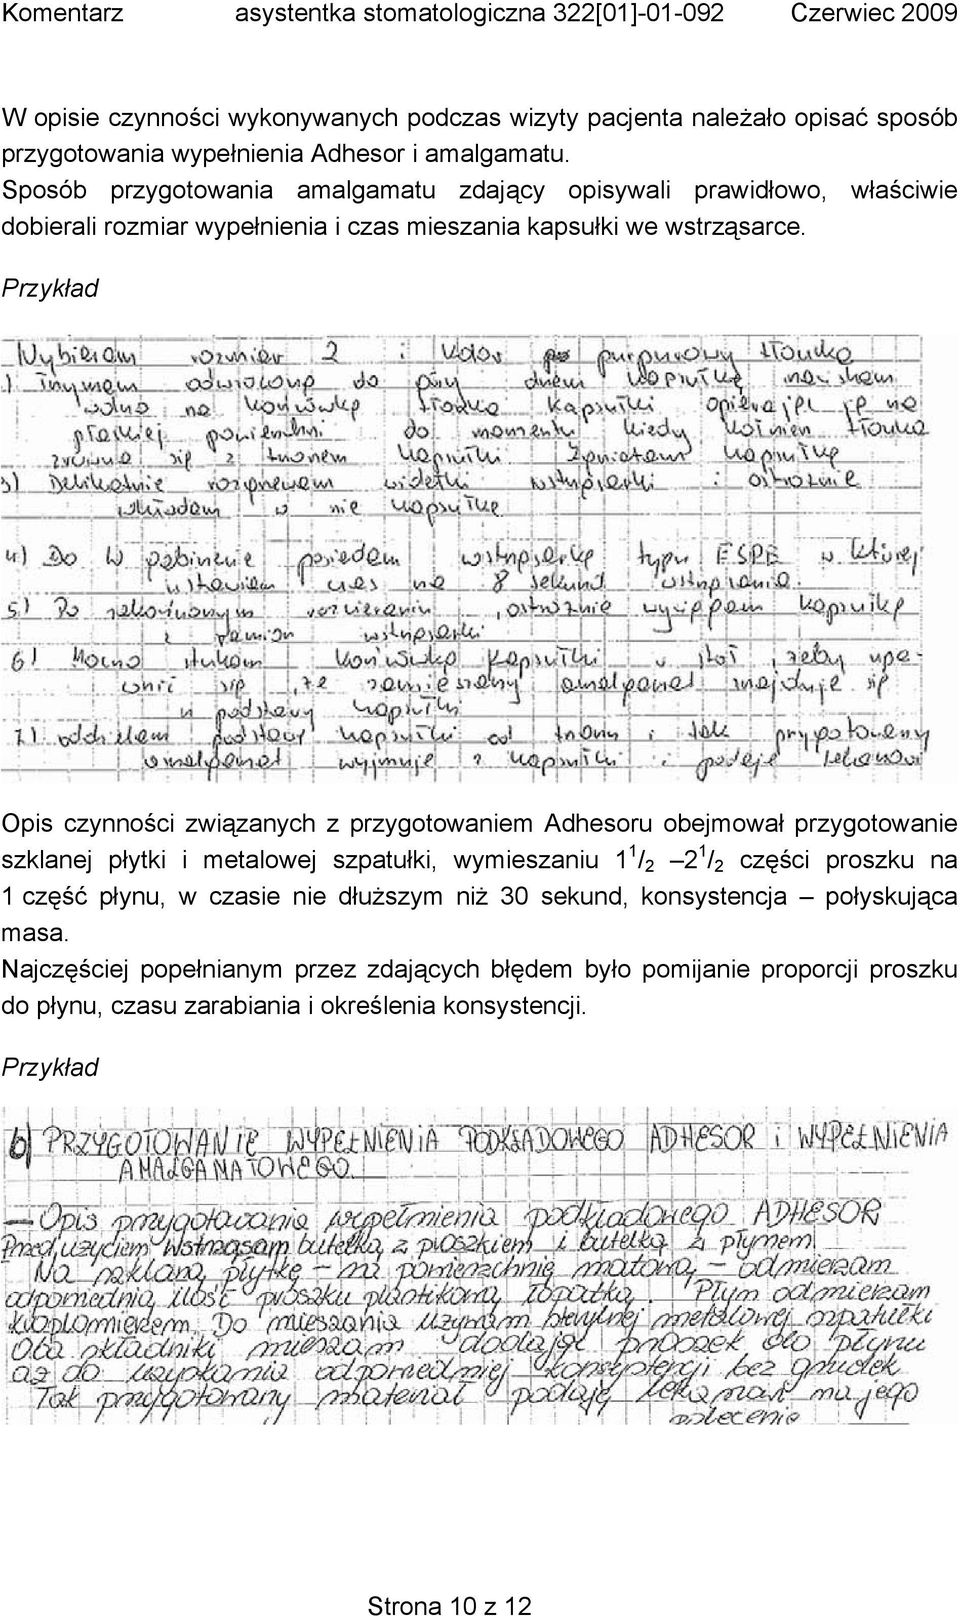 Komentarz asystentka stomatologiczna 322[01]-01-092 Czerwiec 2009
W opisie czynności wykonywanych podczas wizyty pacjenta należało opisać sposób
przygotowania wypełnienia Adhesor i amalgamatu.
Sposób przygotowania amalgamatu zdający opisywali prawidłowo, właściwie
dobierali rozmiar wypełnienia i czas mieszania kapsułki we wstrząsarce.
Przykład
Wybieram rozmiar 2 i kolor purpurowy tłoczka
1) Trzymam odwróconą do góry dnem kapsułkę naciskam
wolno na końcówkę tłoczka kapsułki opierając ją na
płaskiej powierzchni do momentu kiedy kołnierz tłoczka
zrówna się z kapsułki kapsułkę
3) Delikatnie widełki wstrząsarki i ostrożnie
wkładam w nie kapsułkę
4) Do wstrząsarkę typu ESPE w której
ustawiam czas na 8 sekund wstrząsania.
5) Po zakończonym , ostrożnie wyciągam kapsułkę
z ramion wstrząsarki
6) Mocno stukam końcówką kapsułki w stół , żeby upe-
wnić się , że zamieszany amalgamat znajduje się
w podstawy kapsułki
7) oddzielam podstawę kapsułki od i tak przygotowany
amalgamat wyjmuję z kapsułki i podaję lekarzowi
Opis czynności związanych z przygotowaniem Adhesoru obejmował przygotowanie
szklanej płytki i metalowej szpatułki, wymieszaniu 1 1/2 – 2 1/2 części proszku na
1 część płynu, w czasie nie dłuższym niż 30 sekund, konsystencja – połyskująca
masa.
Najczęściej popełnianym przez zdających błędem było pomijanie proporcji proszku
do płynu, czasu zarabiania i określenia konsystencji.
Przykład
b) PRZYGOTOWANIE WYPEŁNIENIA PODKŁADOWEGO ADHESOR i WYPEŁNIENIA
AMALGAMATOWEGO.
– Opis przygotowania wypełnienia podkładowego ADHESOR
Przed użyciem wstrząsam butelką z proszkiem i butelką z płynem.
Na szklaną płytkę – na powierzchnię matową – odmierzam
odpowiednią ilość proszku plastikową łopatką. Płyn odmierzam
kroplomierzem. Do mieszania używam metalowej szpatułki
Oba składniki mieszam dodając proszek do płynu
aż do uzyskania odpowiedniej konsystencji bez grudek
Tak przygotowany materiał podaję lekarzowi na jego
polecenie
Strona 10 z 12